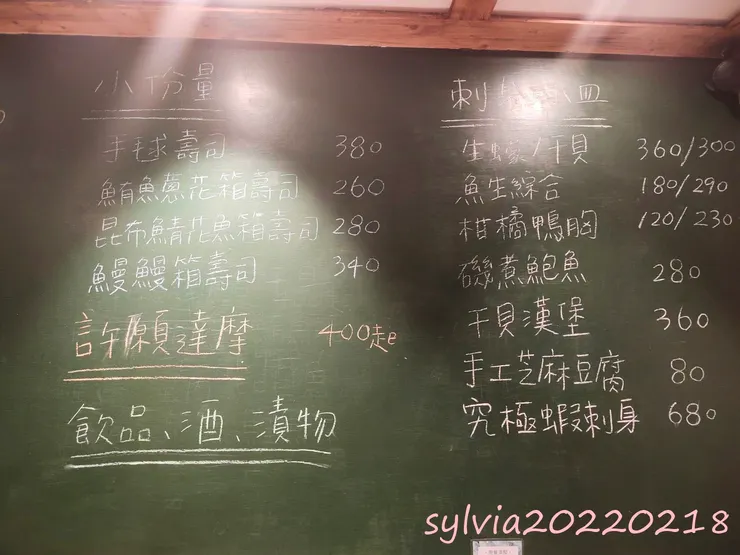 小份量
手毬壽司 380
鮪魚蔥花箱壽司 260
昆布鯖花魚箱壽司 280
鰻鰻箱壽司 340
許願達摩 400起
飲品、酒、漬物
刺 、皿
生蠔/干貝 360/300
魚生綜合 180/290
柑橘鴨胸 120/230
磯煮鮑魚 280
干貝漢堡 360
手工芝麻豆腐 80
究極蝦刺身 680
sylvia20220218